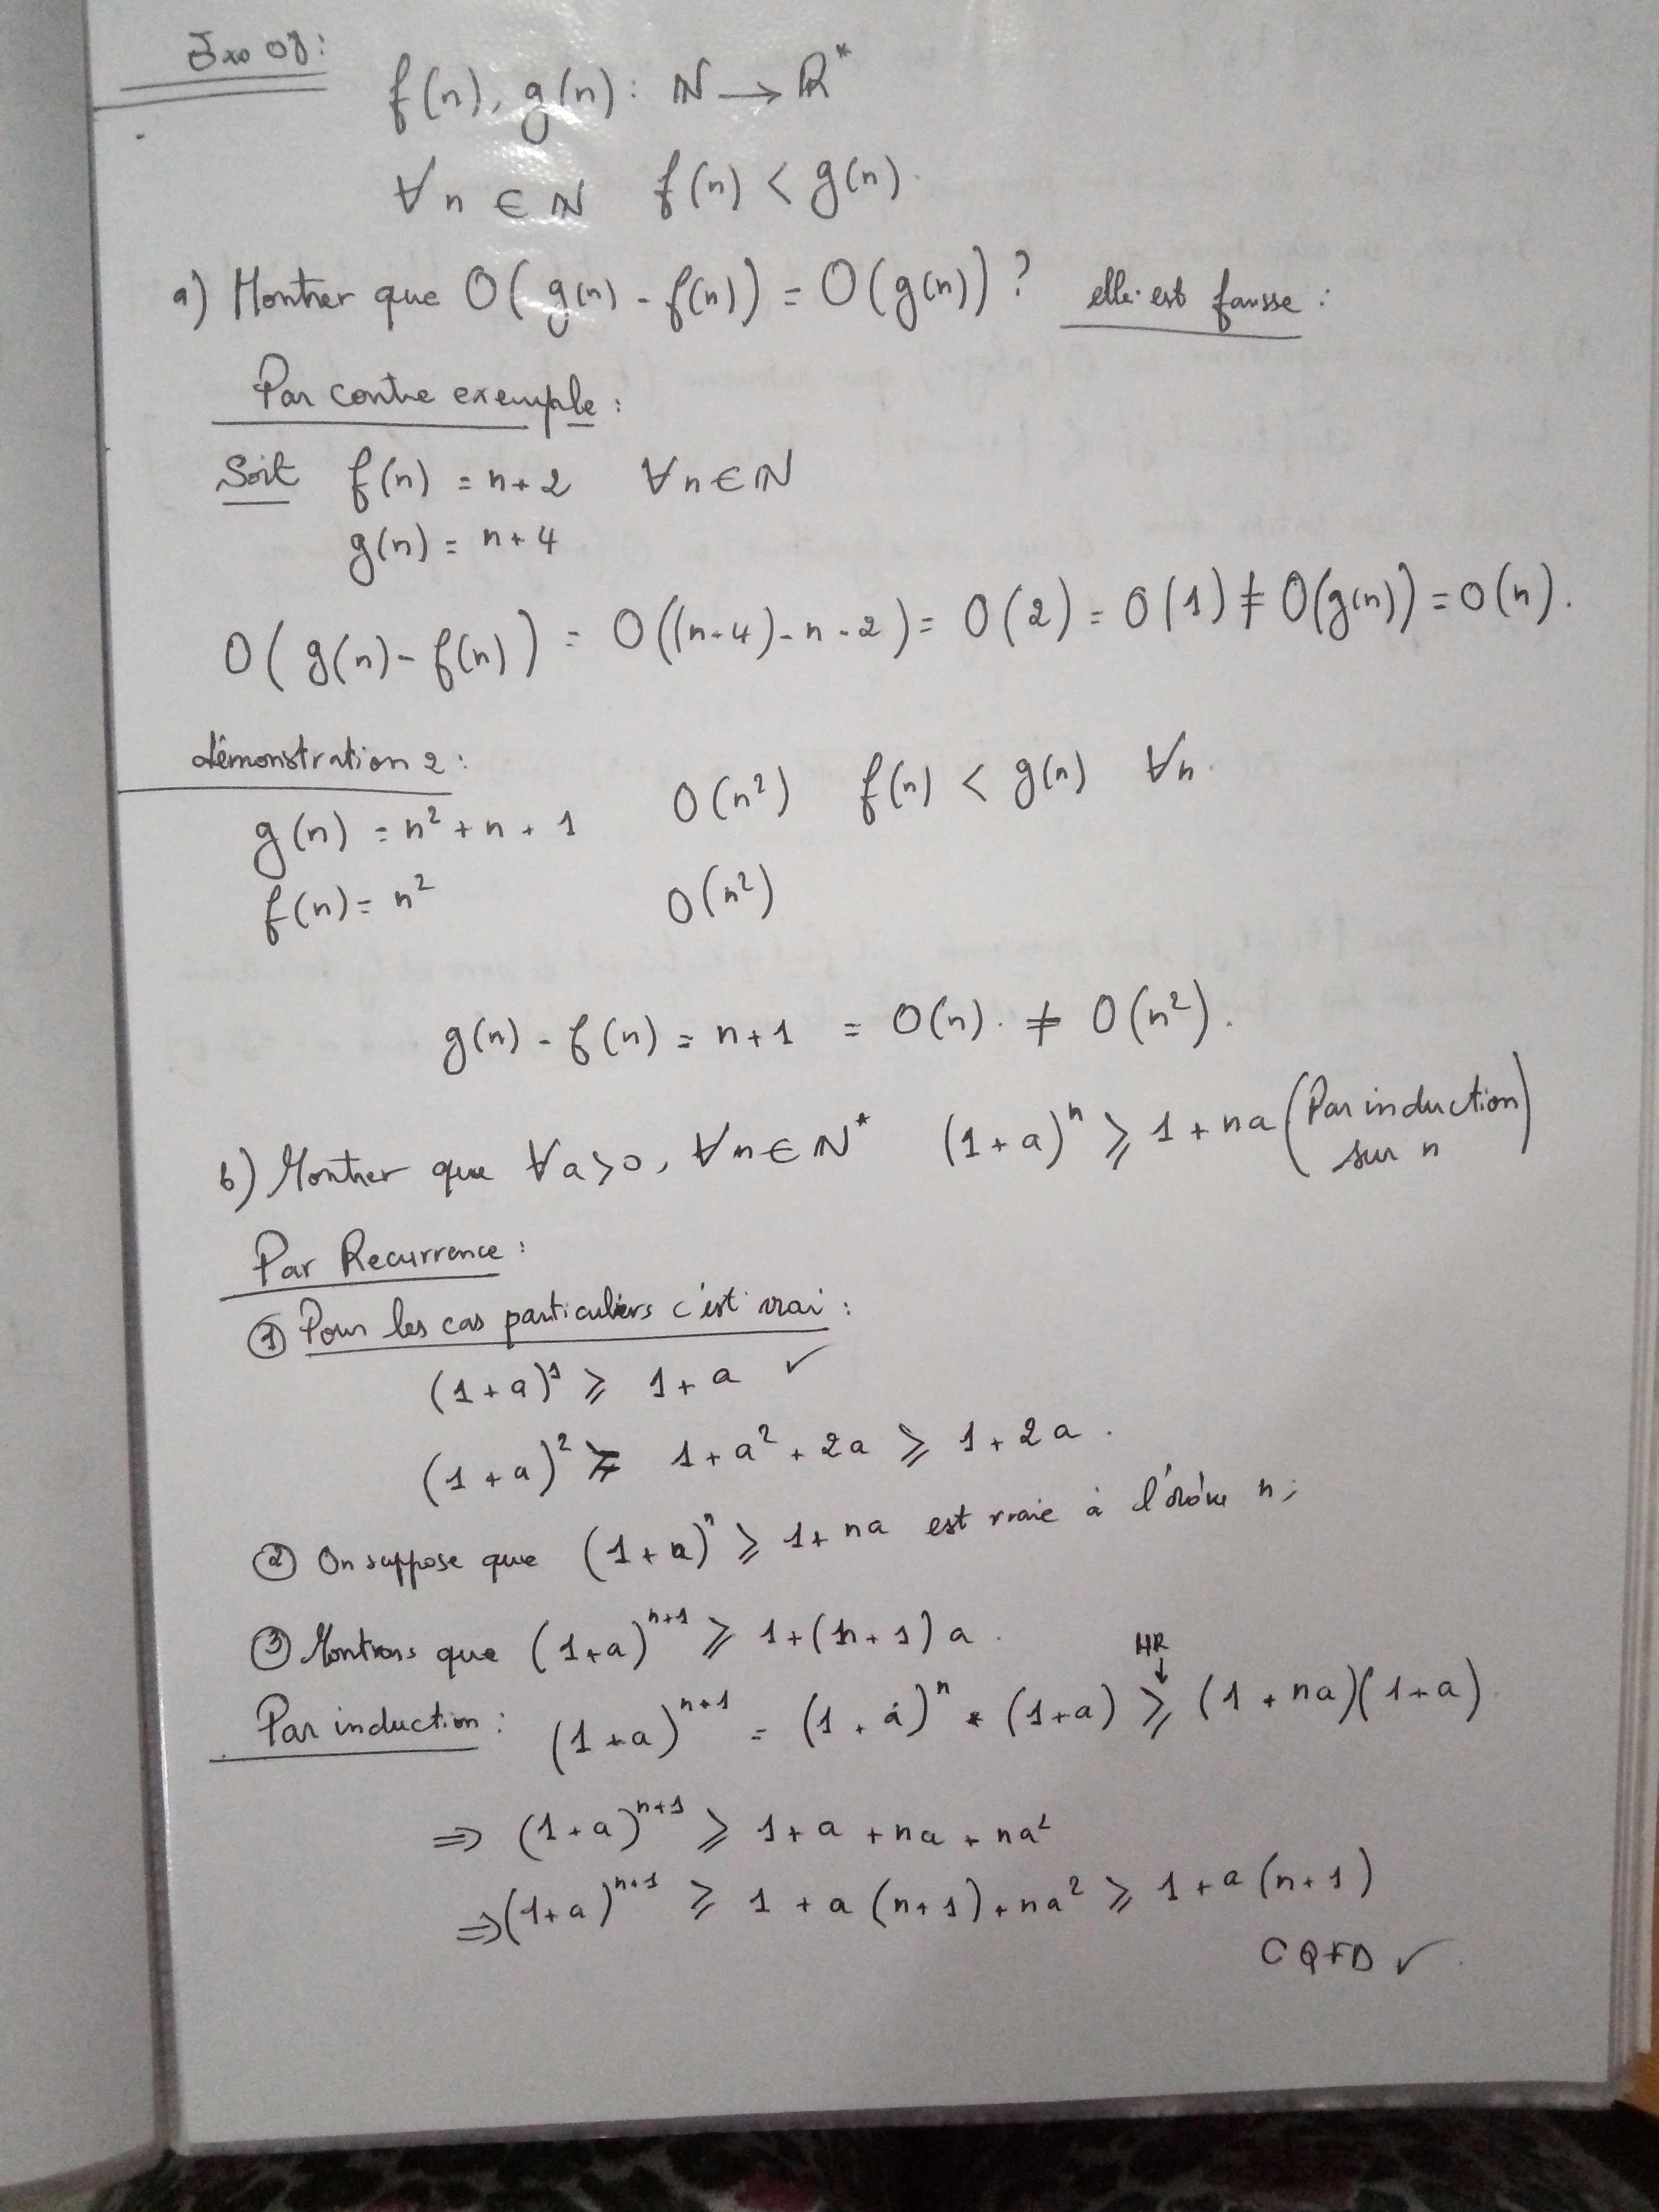 Exo 08:
f(n), g(n): ℕ → ℝ*
∀n ∈ ℕ f(n) < g(n).
a) Montrer que O(g(n) - f(n)) = O(g(n))? elle est fausse:
Par contre exemple:
Soit f(n) = n+2 ∀n∈ℕ
g(n) = n+4
O(g(n)-f(n)) = O((n+4)-n-2) = O(2) = O(1) ≠ O(g(n)) = O(n).
démonstration 2:
g(n) = n²+n+1 O(n²) f(n) < g(n) ∀n.
f(n) = n² O(n²)
g(n) - f(n) = n+1 = O(n). ≠ O(n²).
b) Montrer que ∀a>0, ∀n∈ℕ* (1+a)ⁿ ⩾ 1+na (Par induction
sur n)
Par Recurrence:
① Pour les cas particuliers c'est vrai:
(1+a)¹ ⩾ 1+a ✓
(1+a)² ⩾ 1+a²+2a ⩾ 1+2a.
② On suppose que (1+a)ⁿ ⩾ 1+na est vraie à l'ordre n;
③ Montrons que (1+a)ⁿ⁺¹ ⩾ 1+(n+1)a.
HR
↓
Par induction: (1+a)ⁿ⁺¹ = (1+a)ⁿ * (1+a) ⩾ (1+na)(1+a).
⇒ (1+a)ⁿ⁺¹ ⩾ 1+a+na+na²
⇒ (1+a)ⁿ⁺¹ ⩾ 1+a(n+1)+na² ⩾ 1+a(n+1)
CQFD ✓.